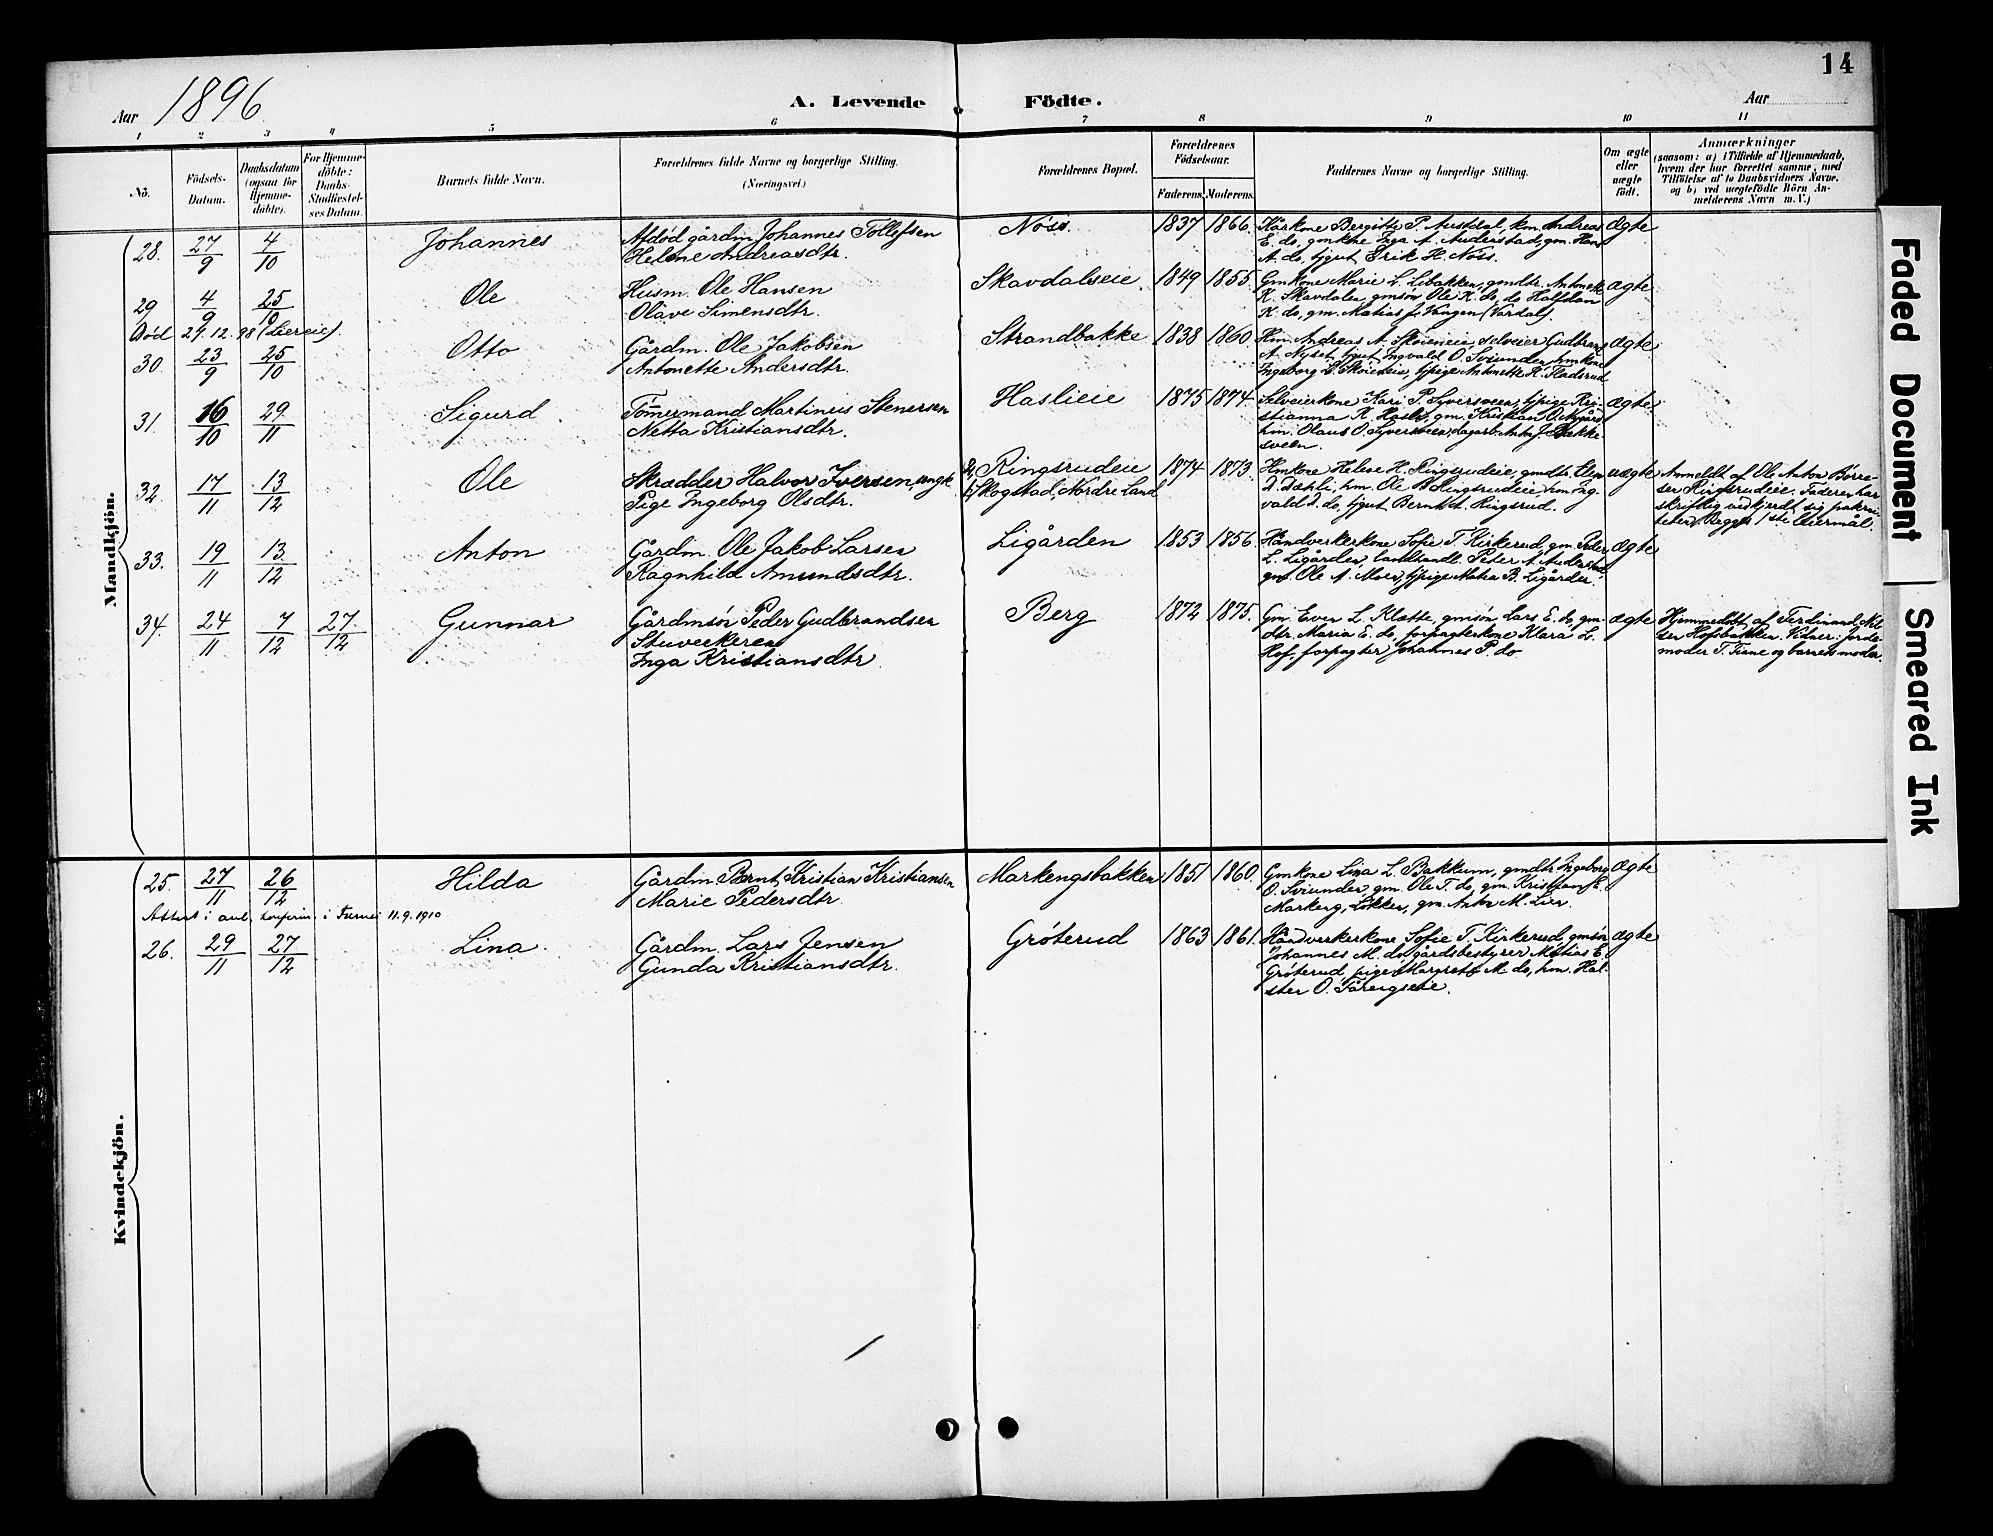 14
Aar 1896
A. Levende Födte.
Aar
1 2 3 4 5 6 7 8 9 10 11
No.
Födsels-Datum.
Daabsdatum (ogsaa for Hjemme-döbte).
For Hjemme-döbte: Daabs-Stadfæstel-ses Datum.
Barnets fulde Navn.
Forældrenes fulde Navne og borgerlige Stilling. (Næringsvei.)
Forældrenes Bopæl.
Forældrenes Födselsaar.
Faderens. Moderens.
Faddernes Navne og borgerlige Stilling.
Om ægte eller uægte födt.
Anmærkninger
(saasom: a) i Tilfælde af Hjemmedaab,
hvem der har forrettet samme, med
Tilföielse af to Daabsvidners Navne,
og b) ved uægtefödte Börn An-
melderens Navn m. V.)
Mandkjön.
28. 27/9 4/10 Johannes
Afdød gårdm. Johannes Tollefsen
Helene Andreasdtr.
Nøss. 1837 1866.
Kårkone Bergitte P. Austdal, km. Andreas
E. do, gmkone Inga A. Auderstad, gm. Hans
A. do, tjgut Erik H. Nøss.
Ægte
29 4/9 25/10 Ole
Husm. Ole Hansen
Olave Simensdtr.
Skavdalseie. 1849 1855.
Gmkone Marie L. Libakken, gmdtr. Antonette
K. Skavdalen, gmsøn Ole K. do, do Halfdan
K. do, gm. Matias J. Vangen (Vardal).
ægte
Død 29.12.98 (Liereie).
30. 23/9 25/10 Otto
Gårdm. Ole Jakobsen
Antonette Andersdtr.
Strandbakke 1838 1860
Hm. Andreas A. Skøieneie, Selveier Gudbrand
A. Nyset, tjgut Ingvald O. Sviunden, hmkone
Ingeborg S. Skøieneie, tjpige Antonette K. Fladsrud
ægte
31. 16/10 29/11 Sigurd
Tömmermand Martinius Stenersen
Netta Kristiansdtr.
Haslieie 1875 1874.
Selveierkone Kari P. Syversveen, tjpige Kri-
stianna K. Hasli, gm. Kristian O. Nygård,
hm. Olaus O. Syversveen, dagarb. Anton J. Bakke-
sveen.
ægte
32. 17/11 13/12 Ole
Skrædder Halvor Iversen, ungk.
Pige Ingeborg Olsdtr.
Ringsrudeie
Skogstad, Nordre Land
1874 1873.
Hmkone Helene H. Ringsrudeie, gmdtr. Elen
D. Dæhli, hm. Ole B. Ringsrudeie, hm. Ing-
vald D. do, tjgut Bernt A. Ringsrud.
uægte
Anmeldt af Ole Anton Børre-
sen Ringsrudeie. Faderen har
skriftlig vedkjendt sig paterni-
teten. Begges 1ste Leiermål.
33. 19/11 13/12 Anton
Gårdm. Ole Jakob Larsen
Ragnhild Amundsdtr.
Ligården 1853 1856.
Håndverkerkone Sofie T. Kirkerud, gm. Peder
L. Ligården, landhandl. Peter A. Auderstad,
gm. Ole A. Moen, tjpige Matea B. Ligården.
Ægte
34. 24/11 7/12 27/12 Gunnar
Gårdmsøn Peder Gudbrandsen
Stuveekeren
Inga Kristiansdtr.
Berg 1872 1875.
Gm. Even L. Klette, gmsøn Lars E. do, gm-
dtr. Maria E. do, forpagterkone Klara L.
Hof, forpagter Johannes P. do
ægte
Hjemmedøbt af Ferdinand Nil-
sen Hofsbakken. Vidner: Jorde-
moder T. Finne og barnets moder.
Kvindekjön.
25. 27/11 26/12 Hilda
Gårdm. Bernt Kristian Kristiansen
Marie Pedersdtr.
Markengsbakken 1851 1860.
Gmkone Lina L. Bakkum, gmdtr. Ingeborg
O. Sviunden, gm. Ole T. do, gm. Kristian A.
Markeng, Løkken, gm. Anton M. Lien.
Ægte
Attest i anl. konfirm. i Furnes 11.9.1910
26. 29/11 27/12 Lina
Gårdm. Lars Jensen
Gunda Kristiansdtr.
Grøterud 1863 1861.
Håndverkerkone Sofie T. Kirkerud, gmsøn
Johannes M. do, gårdsbestyrer Matias E.
Grøterud, pige Margrete M. do, hm. Hal-
sten O. Fårengseie.
ægte
Faded Document
Smeared Ink